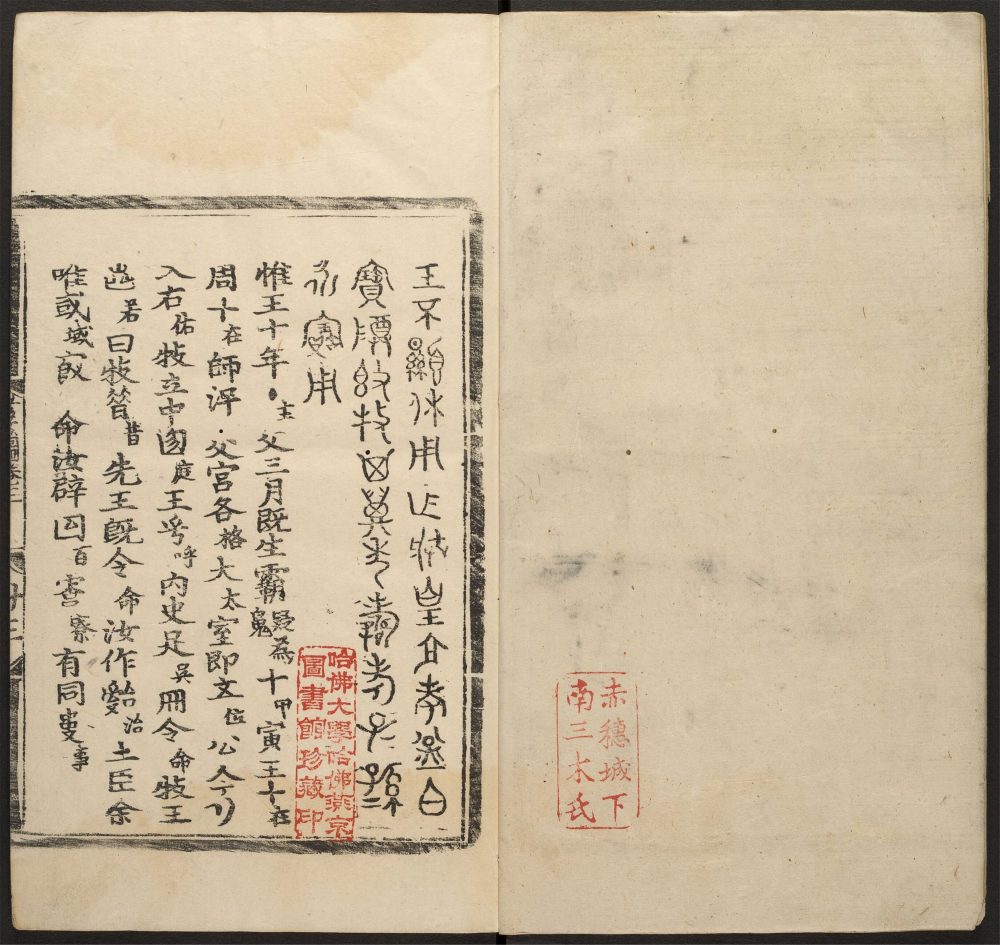 赤穗城下
南三木氏
王不顯休用作牧皇文孝益白
寶牧其萬年壽考子孫
永寶用
惟王十年 主父三月既生霸疑為十甲寅王十在
周十在師父宮各格大太室即文位公
入右佑牧立中庭王乎呼內史足吳冊令命牧王
若曰牧昔先王既令命汝作治土臣余
唯或域命汝辟百寮有同事
哈佛大學哈佛燕京
圖書館珍藏印